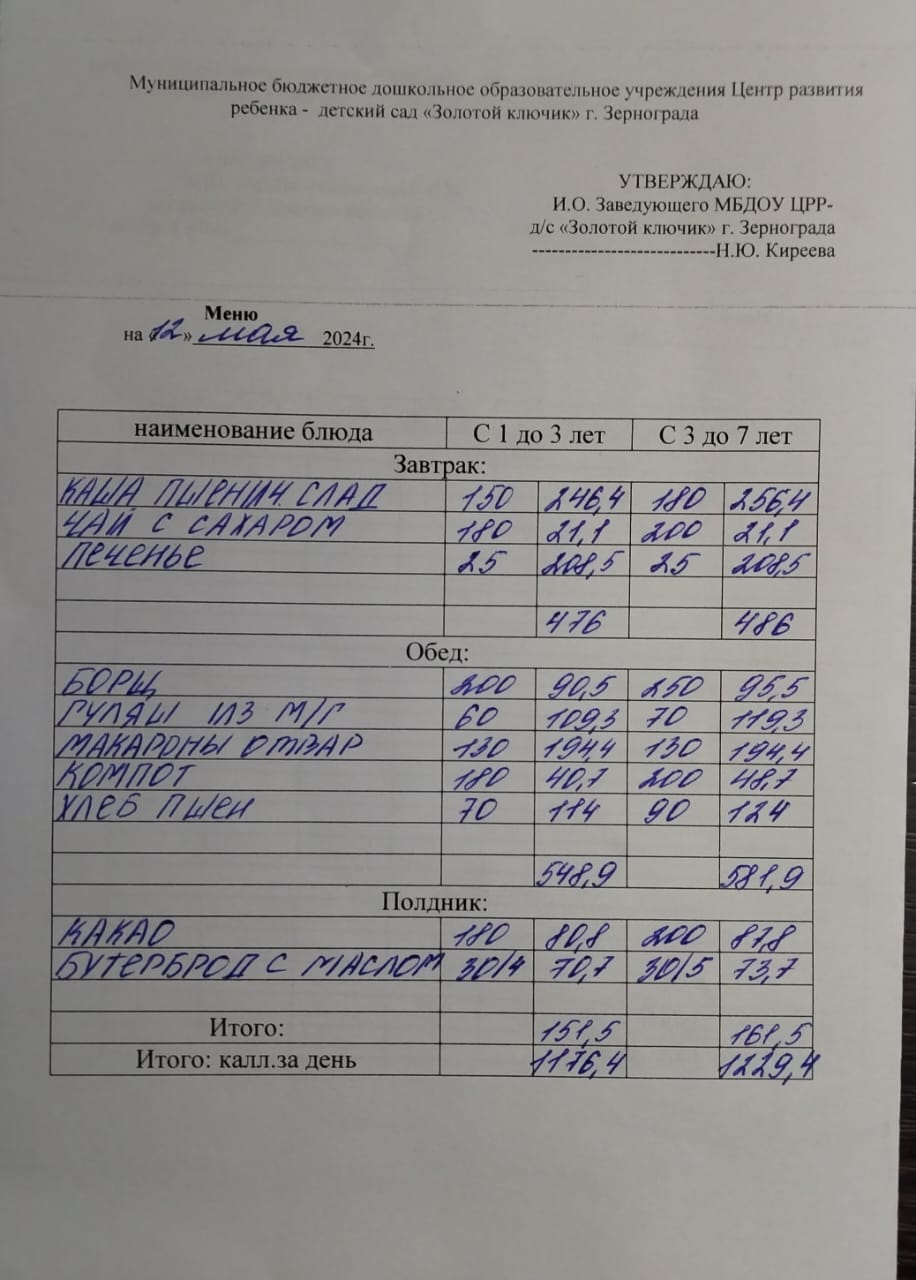 Муниципальное бюджетное дошкольное образовательное учреждения Центр развития
ребенка - детский сад «Золотой ключик» г. Зернограда
УТВЕРЖДАЮ:
И.О. Заведующего МБДОУ ЦРР-
д/с «Золотой ключик» г. Зернограда
----------------------------Н.Ю. Киреева
Меню
на «12» мая 2024г.
наименование блюда С 1 до 3 лет С 3 до 7 лет
Завтрак:
КАША ПШЕНИЧ. СЛАД 150 246,4 180 256,4
ЧАЙ С САХАРОМ 180 21,1 200 21,1
ПЕЧЕНЬЕ 25 208,5 25 208,5
476 486
Обед:
БОРЩ 200 90,5 250 95,5
ГУЛАШ ИЗ М/Г 60 109,3 70 119,3
МАКАРОНЫ ОТВАР 130 194,4 130 194,4
КОМПОТ 180 40,7 200 48,7
ХЛЕБ ПШЕН 70 114 90 124
548,9 581,9
Полдник:
КАКАО 180 80,8 200 87,8
БУТЕРБРОД С МАСЛОМ 30/4 70,7 30/5 73,7
Итого: 151,5 161,5
Итого: калл.за день 1176,4 1229,4